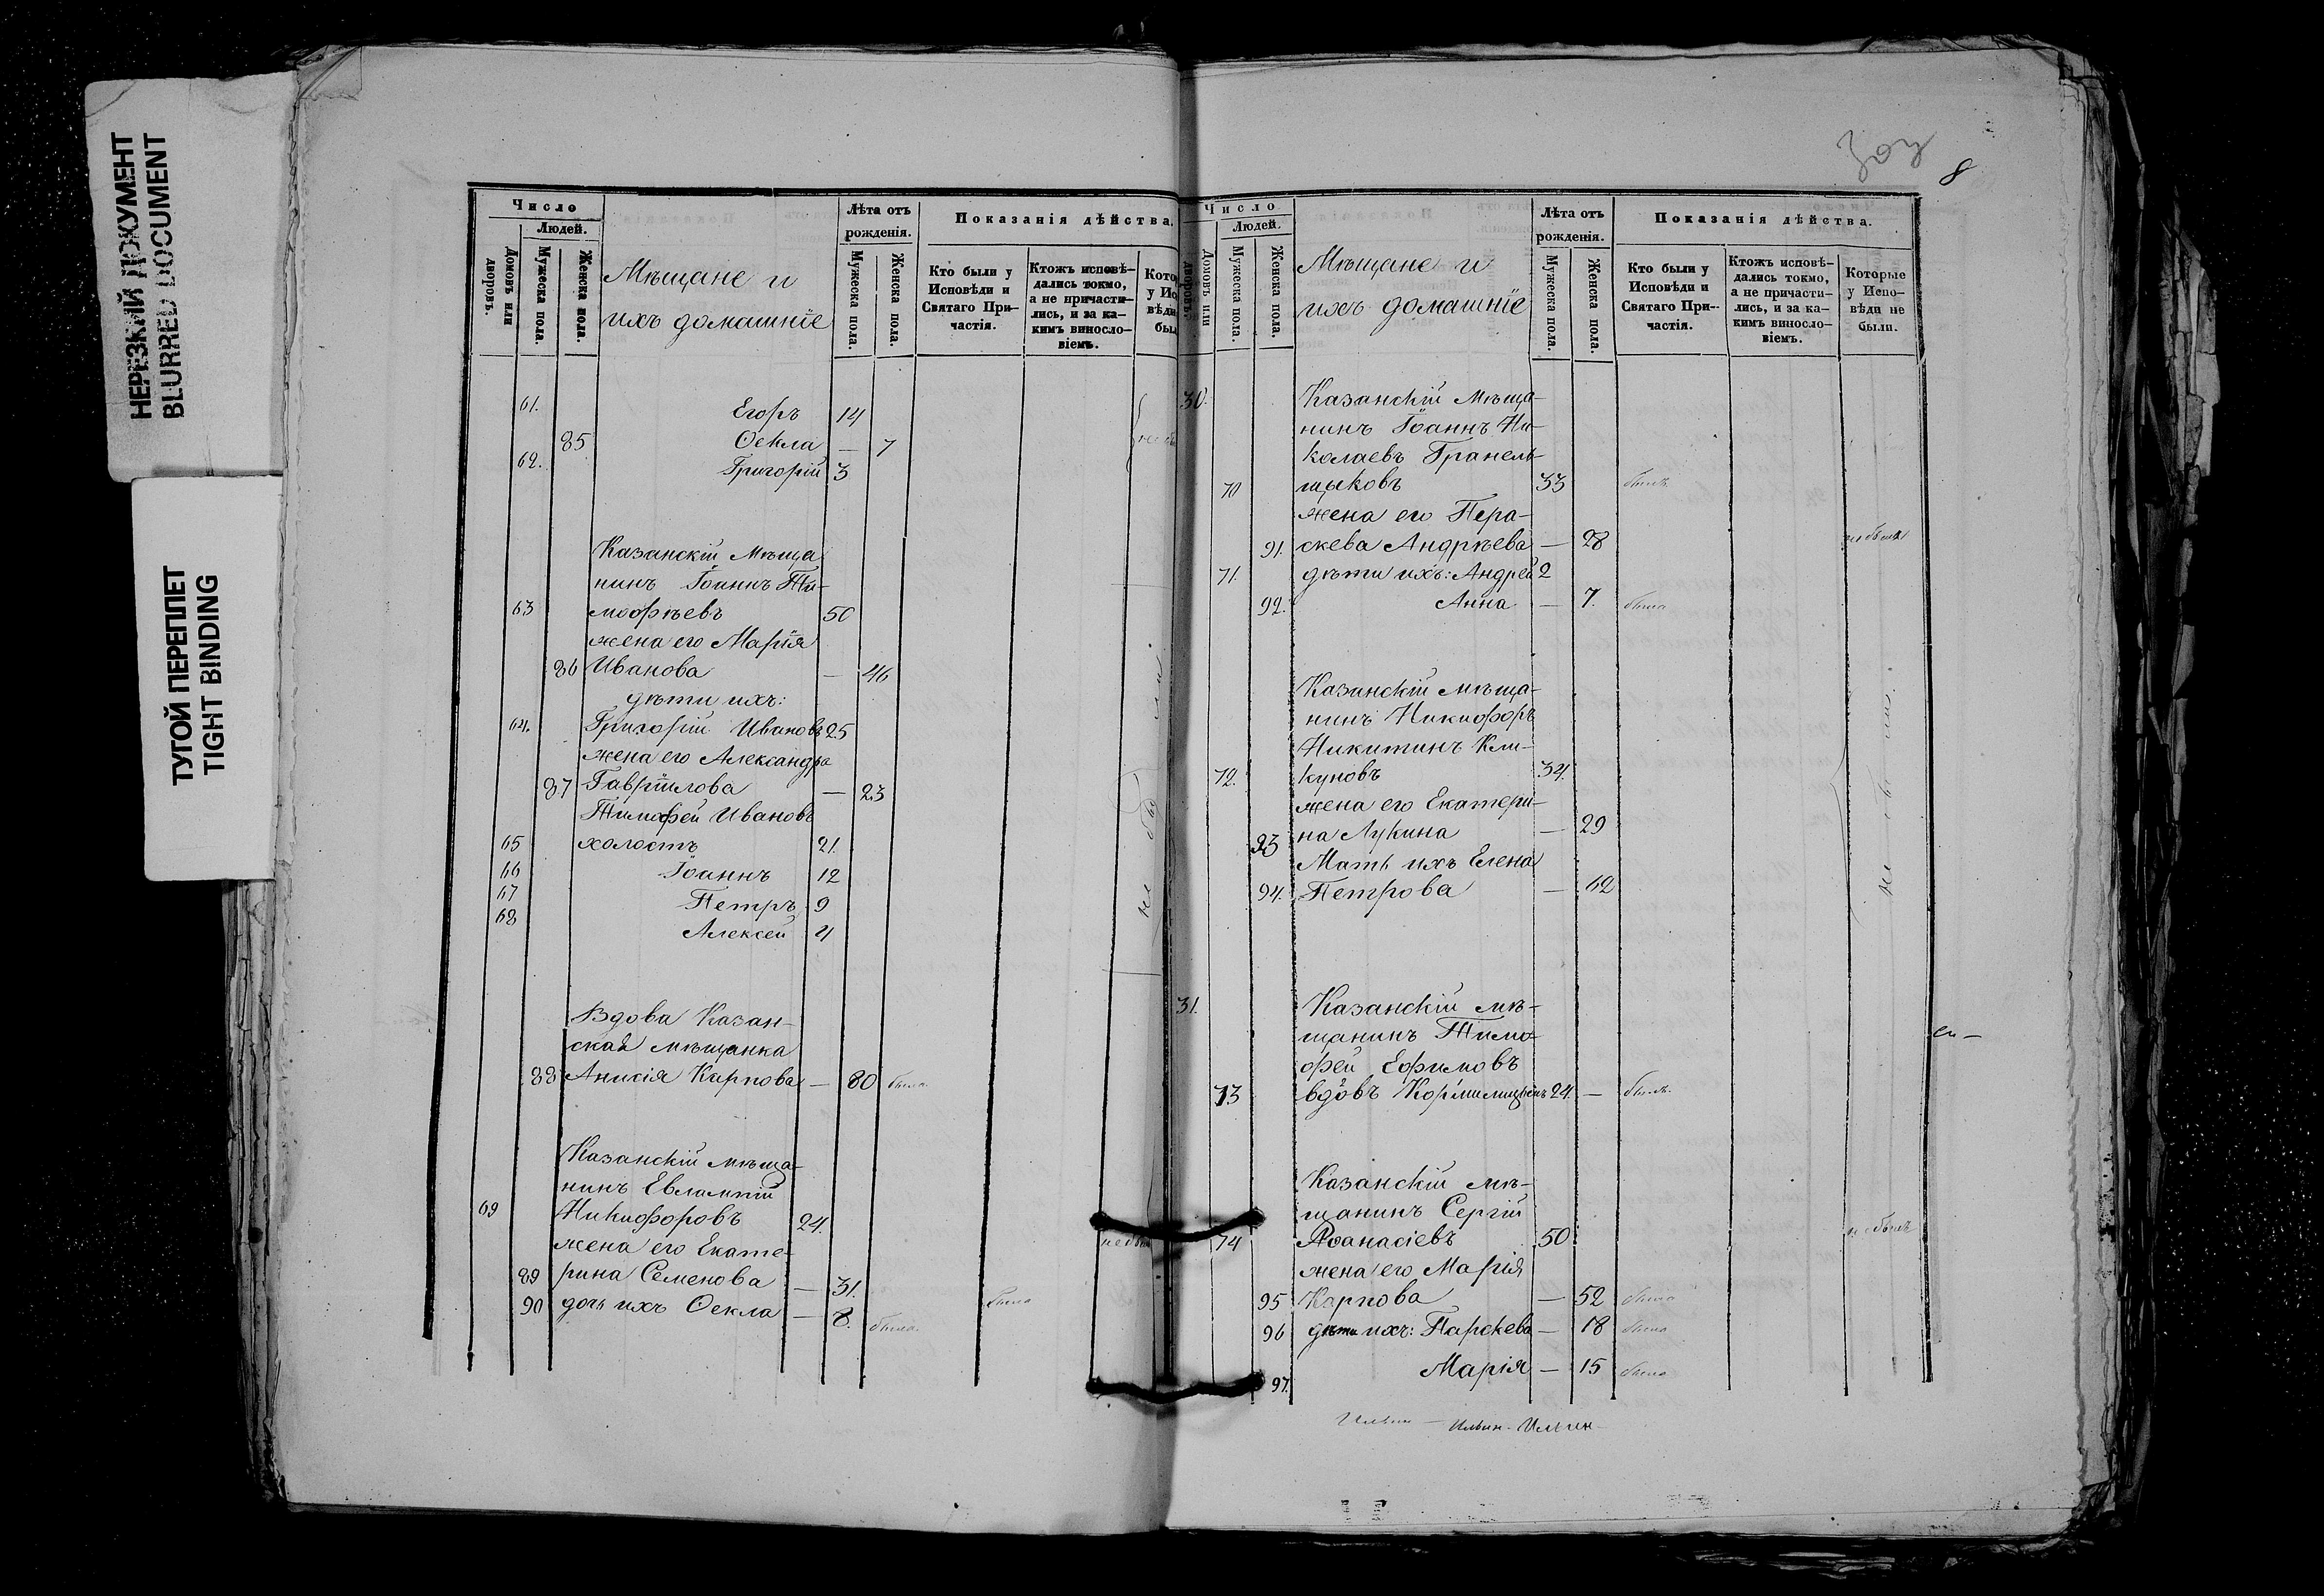 НЕРЕЗКИЙ ДОКУМЕНТ
BLURRED DOCUMENT
ТУГОЙ ПЕРЕПЛЕТ
TIGHT BINDING
Число
Людей.
Домовъ или дворовъ.
Мужеска пола.
Женска пола.
Мѣщане и
ихъ домашніе
Лѣта отъ
рожденія.
Мужеска пола.
Женска пола.
Показанія дѣйства.
Кто были у
Исповѣди и
Святаго При-
частія.
Ктожъ исповѣ-
дались токмо,
а не причасти-
лись, и за ка-
кимъ винословіемъ.
61. Егоръ 14
85 Ѳекла — 7
62. Григорій 3
Казанскій мѣща
нинъ Іоаннъ Ти-
63 моѳѣевъ 50
жена его Марія
86 Иванова — 46
дѣти ихъ:
64. Григорій Ивановъ 25
жена его Александра
87 Гавріилова — 23
Тимоѳей Ивановъ
65 холостъ 21.
66 Іоаннъ 12
67 Петръ 9
68 Алексей 4
не были
Вдова Казан-
ская мѣщанка
88 Анисія Карпова — 80 была
Казанскій мѣща-
нинъ Евлампій
69 Никифоровъ 24.
жена его Екате-
89 рина Семенова — 31. была
90 дочь ихъ Ѳекла — 8. была
303
8
Число
Людей.
Домовъ или дворовъ.
Мужеска пола.
Женска пола.
Мѣщане и
ихъ домашніе
Лѣта отъ
рожденія.
Мужеска пола.
Женска пола.
Показанія дѣйства.
Кто были у
Исповѣди и
Святаго При-
частія.
Ктожъ исповѣ-
дались токмо,
а не причасти-
лись, и за ка-
кимъ винословіемъ.
Которые
у Испо-
вѣди не
были.
30. Казанскій мѣща-
нинъ Іоаннъ Ни-
колаевъ Гранель-
70 щыковъ 33 былъ
жена его Пера-
91. скева Андрѣева — 28 не была
71. дѣти ихъ: Андрей 2
92. Анна — 7. была
Казанскій мѣща-
нинъ Никифоръ
Никитинъ Кли-
72. куновъ 34.
жена его Екатери-
93 на Лукина — 29
Мать ихъ Елена
94. Петрова — 62
не были
31. Казанскій мѣ-
щанинъ Тимо-
фей Ефимовъ
73 вдовъ 24. — былъ
Казанскій мѣ-
щанинъ Сергій
74 Аѳанасіевъ 50 не былъ
жена его Марія
95 Карпова — 52 была
96 дѣти ихъ: Парскева — 18 была
97. Марія — 15 была
Ильин - Ильин - Ильин